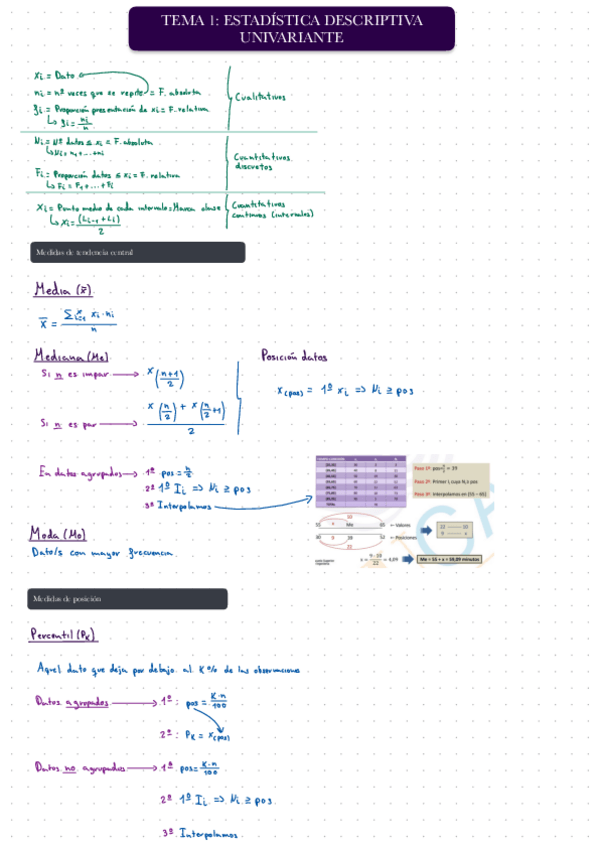 TEMA 1: ESTADÍSTICA DESCRIPTIVA
UNIVARIANTE
xi = Dato
ni = nº veces que se repite = F. absoluta
fi = Proporción presentación de xi = F. relativa
↳ fi = ni/n
Cualitativos
Ni = Nº datos ≤ xi = F. absoluta
↳ Ni = n1 + ... + ni
Fi = Proporción datos ≤ xi = F. relativa
↳ Fi = F1 + ... + Fi
Cuantitativos
discretos
xi = Punto medio de cada intervalo = Marca clase
↳ xi = (Li-1 + Li)/2
Cuantitativos
continuos (intervalos)
Medidas de tendencia central
Media (x̄)
x̄ = Σ xi · ni / n
Mediana (Me)
Si n es impar → x((n+1)/2)
Si n es par → (x(n/2) + x(n/2+1))/2
Posición datos
x(pos) = 1º xi => Ni ≥ pos
En datos agrupados → 1º pos = n/2
2º 1º Ii => Ni ≥ pos
3º Interpolamos
Paso 2º: Primer I
Paso 3º: Interpolamos en [55 - 65]
Me
65
← Valores
← Posiciones
22
Me = 55 + x = 59,09 minutos
Moda (Mo)
Dato/s con mayor frecuencia.
Medidas de posición
Percentil (Pk)
Aquel dato que deja por debajo al K% de las observaciones
Datos agrupados → 1º: pos = K·n/100
2º: Pk = x(pos)
Datos no agrupados → 1º pos = K·n/100
2º 1º Ii => Ni ≥ pos
3º Interpolamos